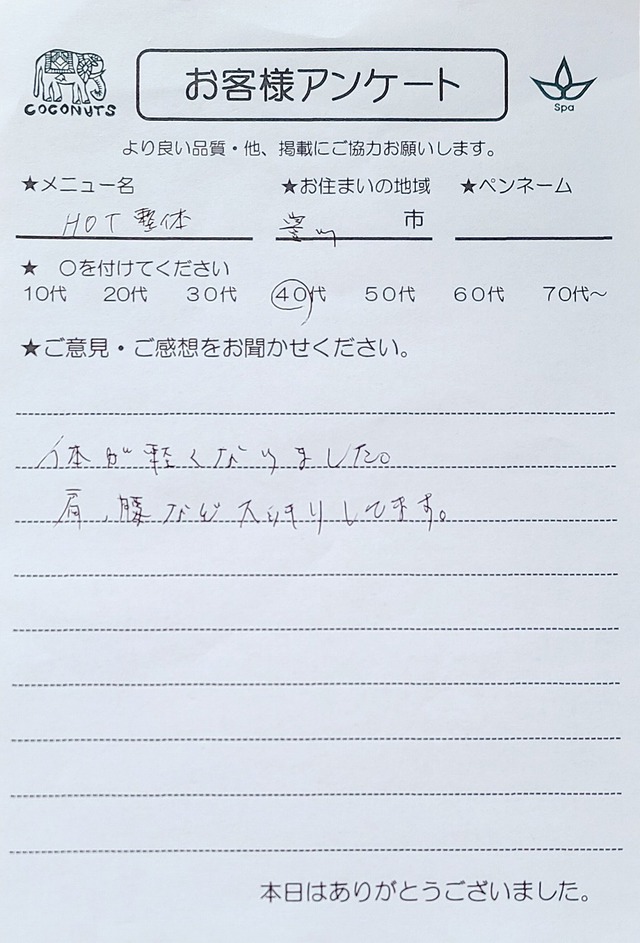 COCONUTS
お客様アンケート
Spa
より良い品質・他、掲載にご協力お願いします。
★メニュー名 ★お住まいの地域 ★ペンネーム
HOT整体 豊川 市
★ ○を付けてください
10代 20代 30代 40代 50代 60代 70代～
★ご意見・ご感想をお聞かせください。
体が軽くなりました。
肩、腰などスッキリしてます。
本日はありがとうございました。